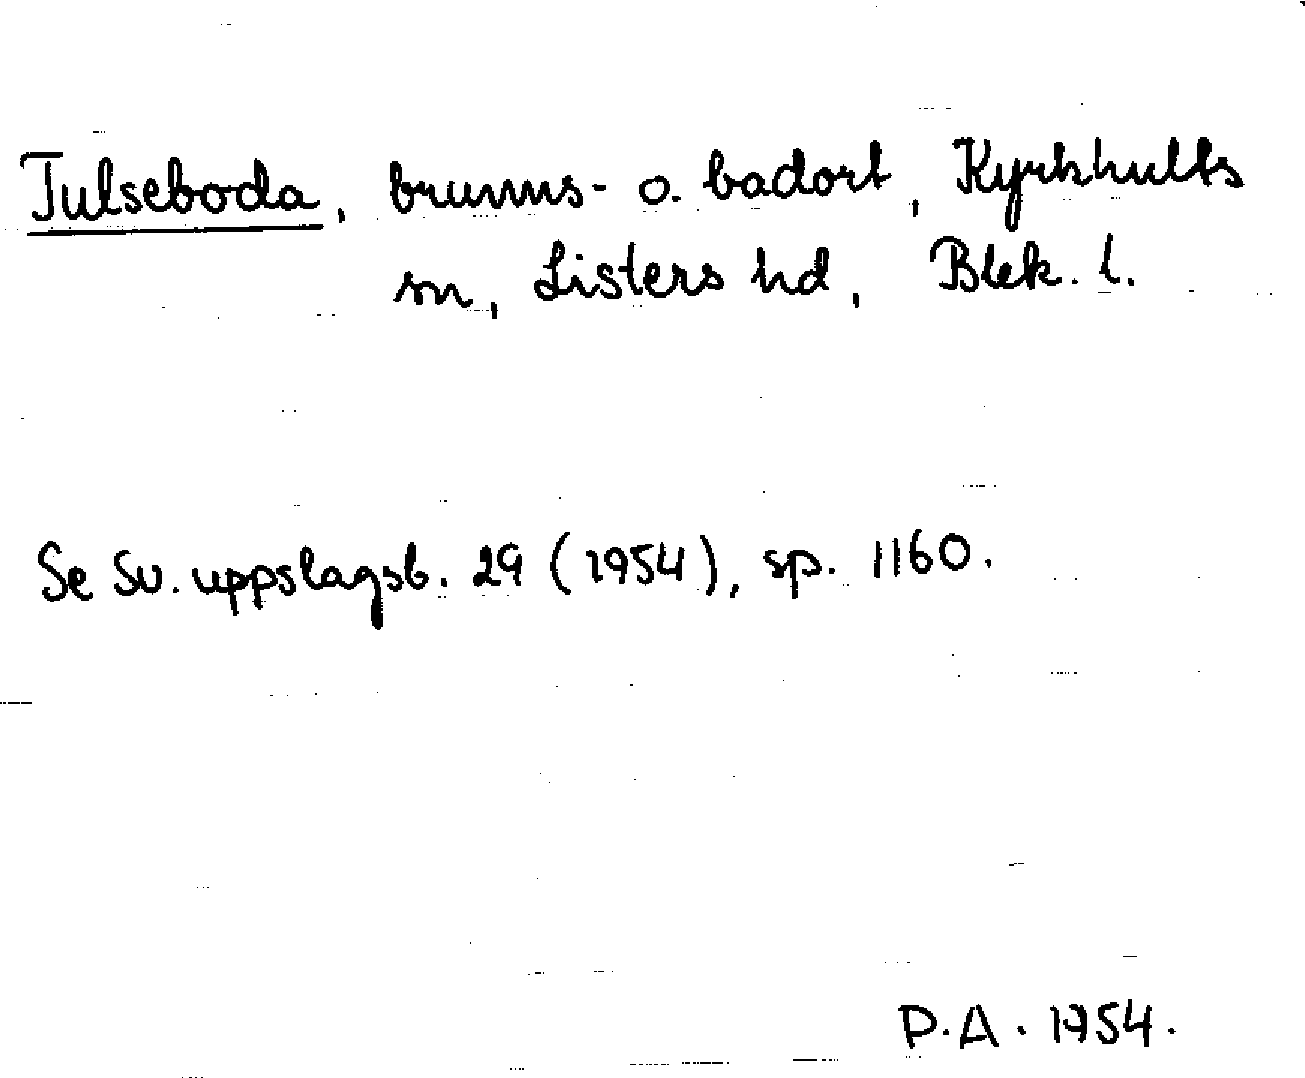 Tulseboda, brunns- o. badort, Kyrkhults
sn, Listers hd, Blek. l.
Se Sv. uppslagsb. 29 (1954), sp. 1160.
P.A. 1954.